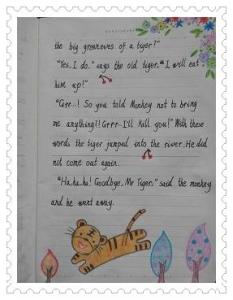 the big greaneves of a tiger?"
"Yes. I do." says the old tiger. "I will eat
him up!"
"Grr-! So you told Monkey not to bring
me anything?! Grrr-I'll kill you!" With these
words the tiger jumped into the river. He did
not come out again.
"Ha, ha, ha! Goodbye, Mr Tiger," said the monkey
and he went away.